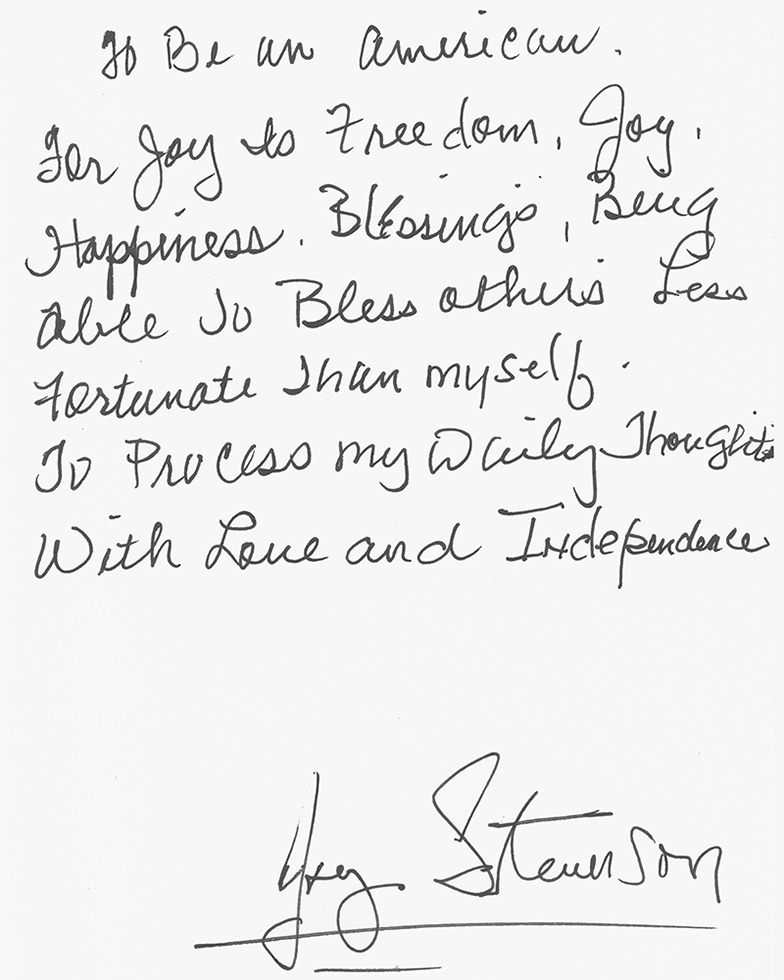 To Be an American.
For Joy is Freedom, Joy,
Happiness. Blessings, Being
Able To Bless others Less
Fortunate Than myself.
To Process my Daily Thoughts
With Love and Independence
Stevenson